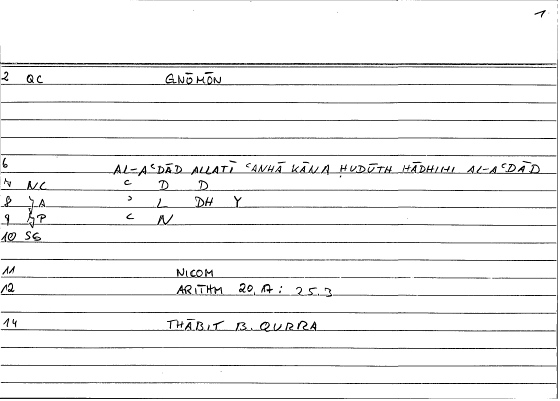 1
2 QC GNŌMŌN
6 AL-AʿDĀD ALLATĪ ʿANHĀ KĀNA ḤUDŪTH HĀDHIHI AL-AʿDĀD
7 NC ʿ D D
8 A ʾ L DH Y
9 P ʿ N
10 SG
11 NICOM
12 ARITHM 20,17: 25.3
14 THĀBIT B. QURRA